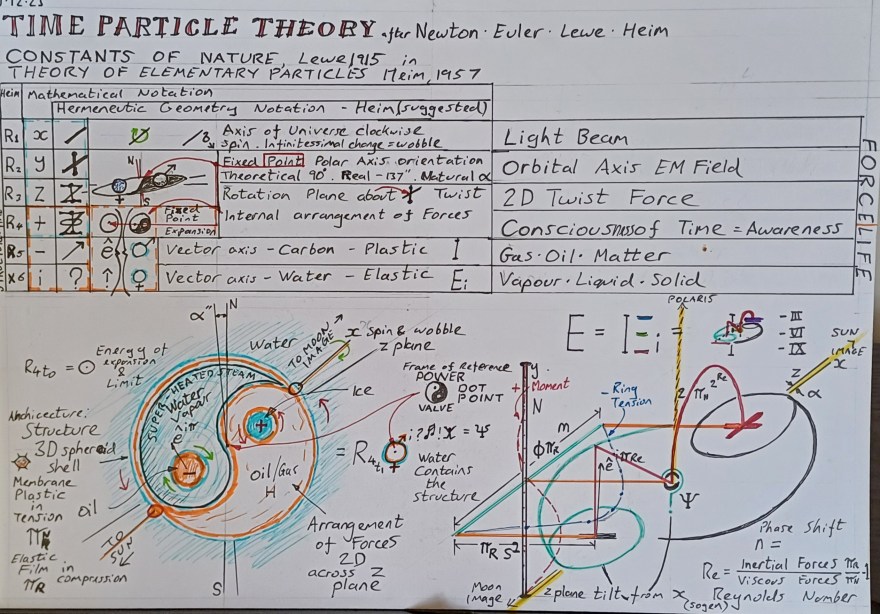 TIME PARTICLE THEORY after Newton · Euler · Lewe · Heim
CONSTANTS OF NATURE, Lewe 1915 in
THEORY OF ELEMENTARY PARTICLES Heim, 1957
Heim Mathematical Notation
Hermeneutic Geometry Notation - Heim (suggested)
R1 x Axis of Universe clockwise
spin. Infinitessimal change = wobble
Light Beam
R2 y Fixed Point Polar Axis orientation
Theoretical 90°. Real - 137". Natural α
Orbital Axis EM Field
R3 Z Rotation Plane about Twist
2D Twist Force
R4 + Fixed Point Expansion
Internal arrangement of Forces
Consciousness of Time = Awareness
R5 - ê Vector axis - Carbon - Plastic I
Gas · Oil · Matter
X6 i ? Vector axis - Water - Elastic Ei
Vapour · Liquid · Solid
FORCE LIFE
N
S
α" N
Water
TO MOON
IMAGE
x spin & wobble
z plane
Ice
R4t0 = Energy of
expansion &
Limit
SUPER-HEATED STEAM
Water
Vapair
e iπ
Oil/Gas
H
Architecture:
Structure
3D spheroid
shell
Membrane
Plastic
in
Tension
Elastic
Film in
compression
πR
Oil
TO
SUN
S
Arrangement
of Forces
2D
across Z
plane
Frame of Reference
POWER
VALVE
OOT
POINT
= R4t1
= Ψ
Water
Contains
the
structure
POLARIS
E = I Ξ i =
- III
- VI
- IX
SUN
IMAGE
x
z
α
y
+ Moment
N
- Ring
Tension
m
ΦπR
ê
iπRe
Ψ
πR S²
Moon
Image
z plane tilt from x
Phase Shift
n =
Re = Inertial Forces / Viscous Forces
Reynolds Number